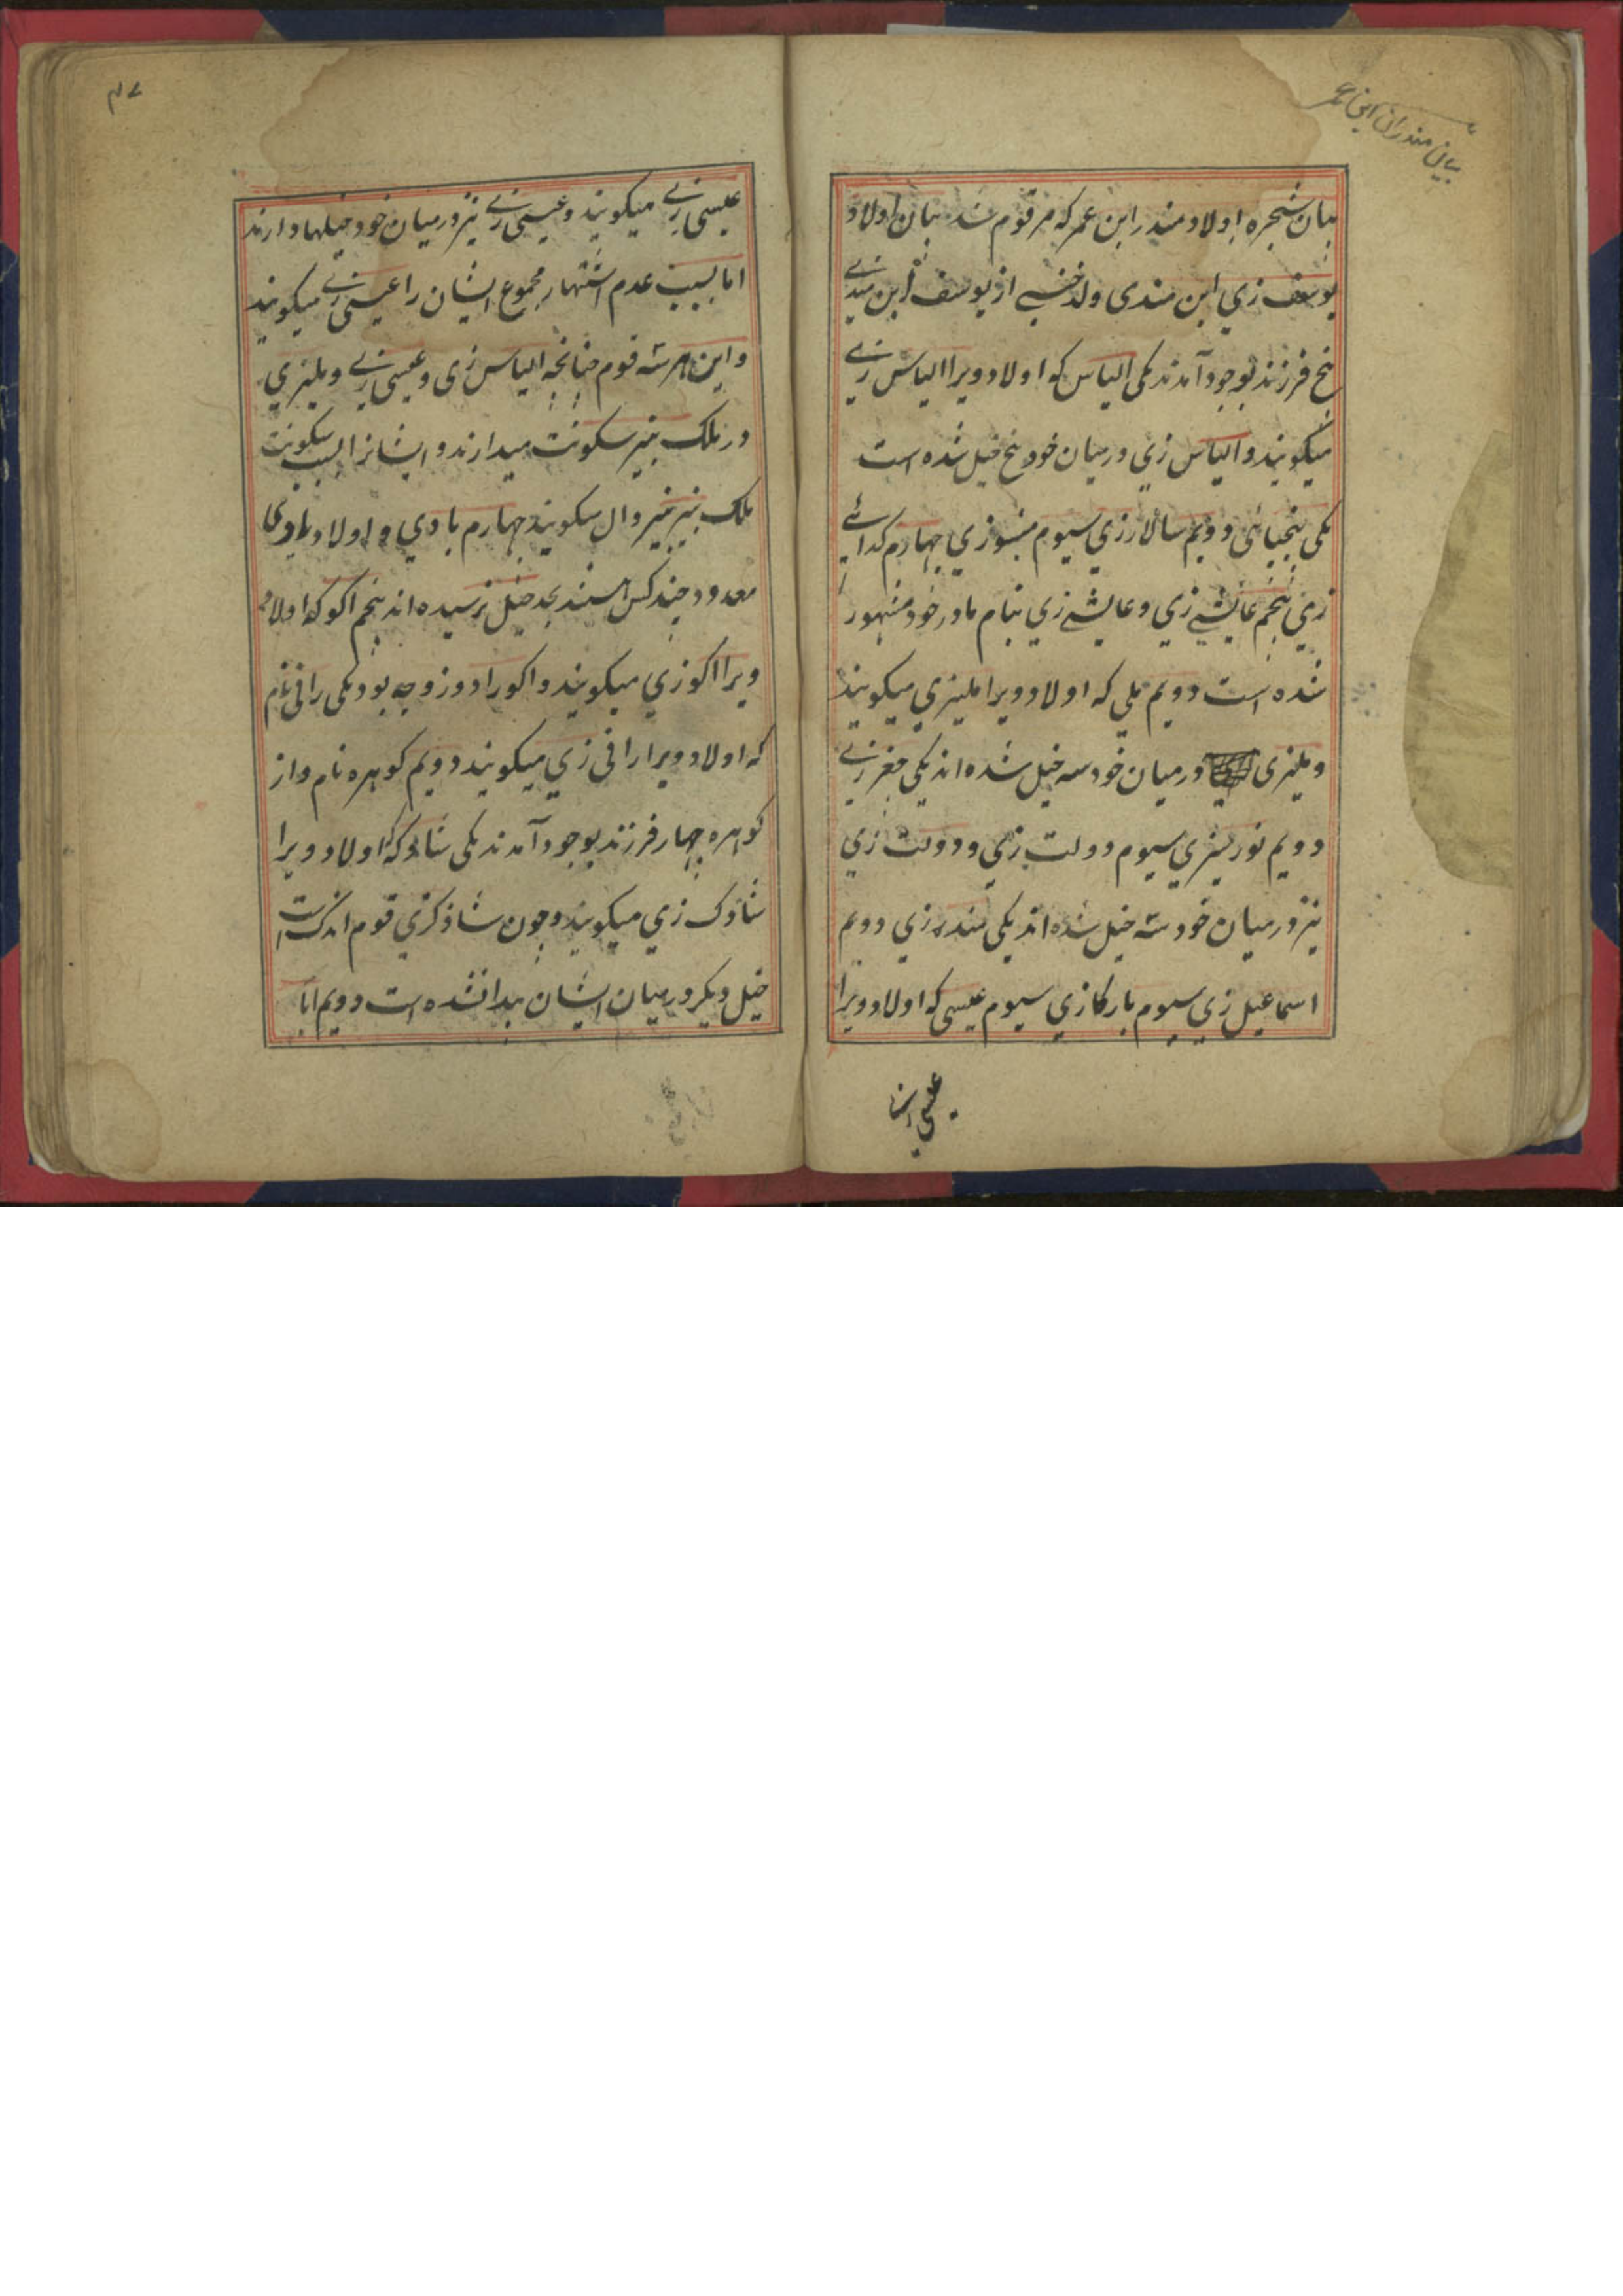 بیان مندران ابن عمر
بیان شجره اولاد مندر ابن عمر که مرقوم شد بیان اولاد
یوسف زي ابن مندی ولد خښي از یوسف ابن مندي
پنج فرزند بوجود آمدند یکی الیاس که اولاد ویرا الیاس زے
میکویند و الیاس زي درمیان خود پنج خیل شده است
یکی پنجپائی دویم سالارزي سیوم منسوزي چهارم کدائے
زي پنجم عایشے زي و عایشے زي بنام مادر خود مشهور
شده است دویم ملي که اولاد ویرا ملیزي میکویند
و ملیزی درمیان خود سه خیل شده اند یکی مغززے
دویم نوریسزي سیوم دولت زي و دولت زي
نیز درمیان خود سه خیل شده اند یکی مندرزي دویم
اسماعیل زي سیوم بارکازي سیوم عیسی که اولاد ویرا
عیسی
۴۷
عیسی زے میکویند و عیسی زے نیز درمیان خود خیلها دارند
اما بسبب عدم اشتهار مجموع ایشان را عیسی زے میکویند
و این هر سه قوم چنانچه الیاس زی و عیسی زے و ملیزي
در ملک بنیر سکونت میدارند و ایشانرا بسبب سکونت
ملک بنیر بنیروال میکویند چهارم بادي و اولاد بادی
معدود چند کس هستند بحد خیل نرسیده اند پنجم اکو که اولاد
ویرا اکوزي میکویند و اکو را دو زوجه بود یکی رانی نام
که اولاد ویرا رانی زي میکویند دویم کوهره نام و از
کوهره چهار فرزند بوجود آمدند یکی شادک که اولاد ویرا
شادک زي میکویند و چون شادکزي قوم اندک است
خیل دیکر درمیان ایشان پیدا نشده است دویم ابا